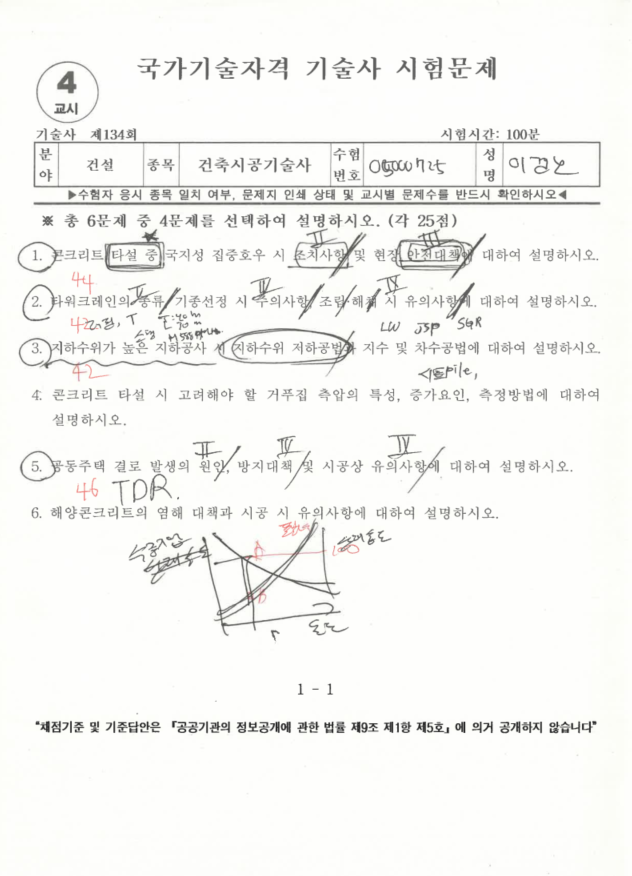 국가기술자격 기술사 시험문제
4
교시
기술사 제134회 시험시간: 100분
분야 건설 종목 건축시공기술사 수험번호 성명
▶수험자 응시 종목 일치 여부, 문제지 인쇄 상태 및 교시별 문제수를 반드시 확인하시오◀
※ 총 6문제 중 4문제를 선택하여 설명하시오. (각 25점)
II III
1. 콘크리트 타설 중 국지성 집중호우 시 조치사항 및 현장 안전대책에 대하여 설명하시오.
44
2. 타워크레인의 종류, 기종선정 시 주의사항, 조립·해체 시 유의사항에 대하여 설명하시오.
LW JSP SGR
3. 지하수위가 높은 지하공사 시 지하수위 저하공법과 지수 및 차수공법에 대하여 설명하시오.
42
4. 콘크리트 타설 시 고려해야 할 거푸집 측압의 특성, 증가요인, 측정방법에 대하여
설명하시오.
II IV IV
5. 공동주택 결로 발생의 원인, 방지대책 및 시공상 유의사항에 대하여 설명하시오.
46 TDR.
6. 해양콘크리트의 염해 대책과 시공 시 유의사항에 대하여 설명하시오.
100
B
1 - 1
“채점기준 및 기준답안은 『공공기관의 정보공개에 관한 법률 제9조 제1항 제5호』에 의거 공개하지 않습니다”